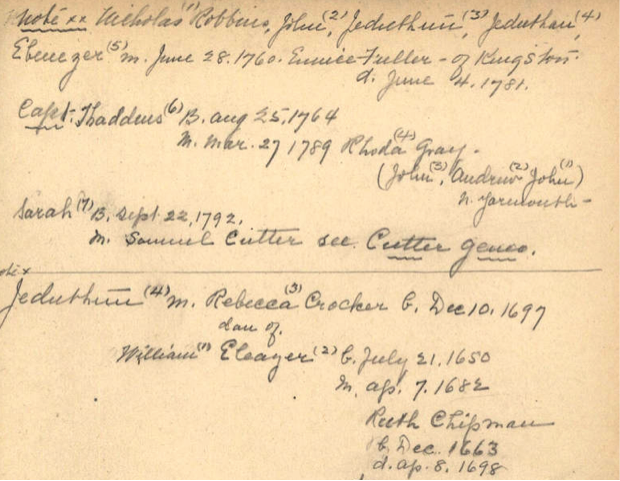 Note xx Nicholas (1) Robbins, John, (2) Jeduthun, (3) Jeduthan, (4)
Ebenezer (5) m. June 28. 1760. Eunice Fuller - of Kingston.
d. June 4. 1781.
Capt. Thaddeus (6) B. aug 25, 1764
M. Mar. 27 1789 Rhoda (4) Gray.
(John (3), Andrew (2) John (1))
N. Yarmouth -
Sarah (7) B. Sept. 22, 1792.
M. Samuel Cutter see Cutter geneo.
Note x
Jeduthun (4) m. Rebecca (3) Crocker b. Dec 10. 1697
dau of.
William (1) Eleazer (2) b. July 21. 1650
M. ap. 7. 1682
Ruth Chipman
b. Dec. 1663
d. ap. 8. 1698